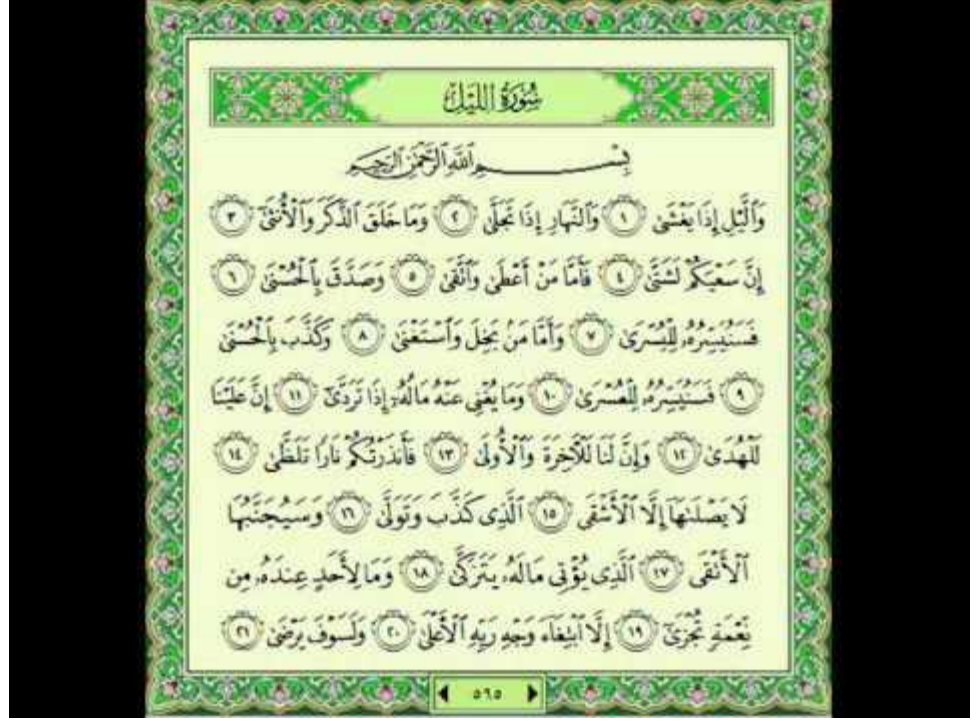 سُورَةُ اللَّيْلِ
بِسْمِ ٱللَّهِ ٱلرَّحْمَٰنِ ٱلرَّحِيمِ
وَٱلَّيْلِ إِذَا يَغْشَىٰ ١ وَٱلنَّهَارِ إِذَا تَجَلَّىٰ ٢ وَمَا خَلَقَ ٱلذَّكَرَ وَٱلْأُنثَىٰٓ ٣
إِنَّ سَعْيَكُمْ لَشَتَّىٰ ٤ فَأَمَّا مَنْ أَعْطَىٰ وَٱتَّقَىٰ ٥ وَصَدَّقَ بِٱلْحُسْنَىٰ ٦
فَسَنُيَسِّرُهُۥ لِلْيُسْرَىٰ ٧ وَأَمَّا مَنۢ بَخِلَ وَٱسْتَغْنَىٰ ٨ وَكَذَّبَ بِٱلْحُسْنَىٰ
٩ فَسَنُيَسِّرُهُۥ لِلْعُسْرَىٰ ١٠ وَمَا يُغْنِى عَنْهُ مَالُهُۥٓ إِذَا تَرَدَّىٰٓ ١١ إِنَّ عَلَيْنَا
لَلْهُدَىٰ ١٢ وَإِنَّ لَنَا لَلْءَاخِرَةَ وَٱلْأُولَىٰ ١٣ فَأَنذَرْتُكُمْ نَارًا تَلَظَّىٰ ١٤
لَا يَصْلَىٰهَآ إِلَّا ٱلْأَشْقَى ١٥ ٱلَّذِى كَذَّبَ وَتَوَلَّىٰ ١٦ وَسَيُجَنَّبُهَا
ٱلْأَتْقَى ١٧ ٱلَّذِى يُؤْتِى مَالَهُۥ يَتَزَكَّىٰ ١٨ وَمَا لِأَحَدٍ عِندَهُۥ مِن
نِّعْمَةٍ تُجْزَىٰٓ ١٩ إِلَّا ٱبْتِغَآءَ وَجْهِ رَبِّهِ ٱلْأَعْلَىٰ ٢٠ وَلَسَوْفَ يَرْضَىٰ ٢١
٥٩٥